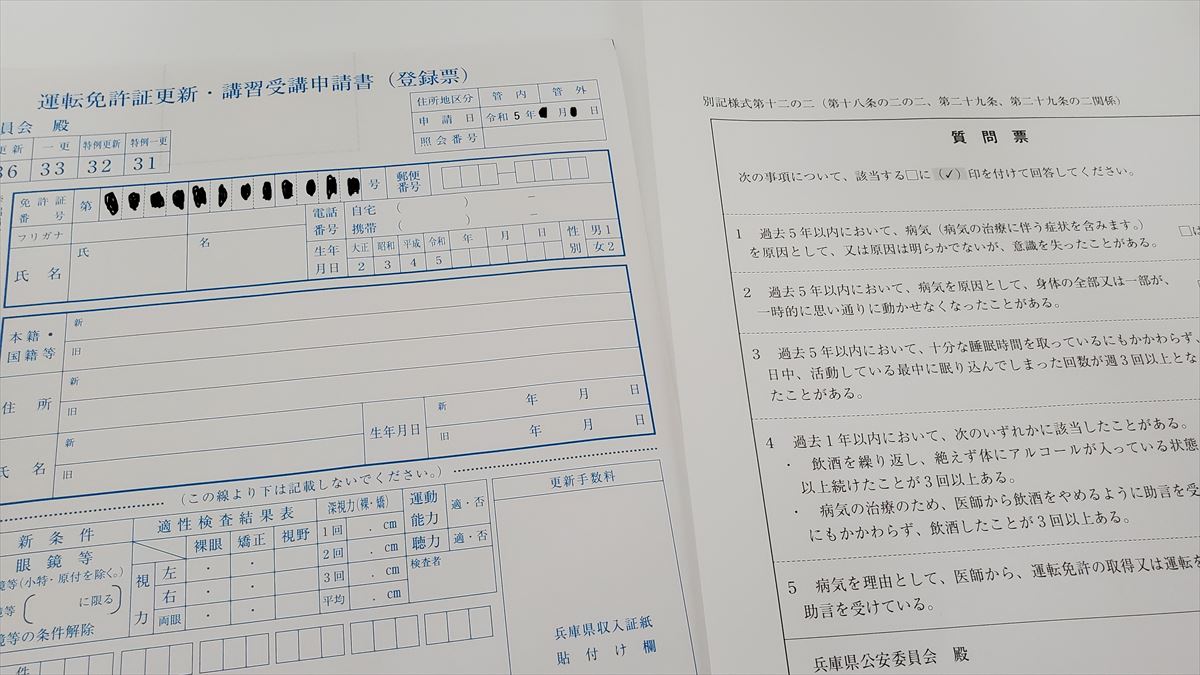 運転免許証更新・講習受講申請書(登録票)
員会 殿
住所地区分 管内 管外
申請日 令和5年 月 日
照会番号
更新 一更 特例更新 特例一更
36 33 32 31
免許証番号 第 号 郵便番号
フリガナ
氏名 氏 名
電話番号 自宅 ( ) −
携帯 ( ) −
生年月日 大正 昭和 平成 令和 年 月 日 性別 男1
2 3 4 5 女2
本籍・国籍等 新
旧
住所 新
旧
氏名 新
旧
生年月日 新 年 月 日
旧 年 月 日
(この線より下は記載しないでください。)
新条件
眼鏡等
鏡等(小特・原付を除く。)
鏡等( に限る)
鏡等の条件解除
適性検査結果表
裸眼 矯正 視野
視力 左 ・ ・
右 ・ ・
両眼 ・ ・
深視力(裸・矯)
1回 . cm
2回 . cm
3回 . cm
平均 . cm
運動能力 適・否
聴力 適・否
検査者
更新手数料
兵庫県収入証紙
貼付け欄
件
別記様式第十二の二(第十八条の二の二、第二十九条、第二十九条の二関係)
質問票
次の事項について、該当する□に(✓)印を付けて回答してください。
1 過去5年以内において、病気(病気の治療に伴う症状を含みます。)
を原因として、又は原因は明らかでないが、意識を失ったことがある。
□は
2 過去5年以内において、病気を原因として、身体の全部又は一部が、
一時的に思い通りに動かせなくなったことがある。
3 過去5年以内において、十分な睡眠時間を取っているにもかかわらず、
日中、活動している最中に眠り込んでしまった回数が週3回以上とな
たことがある。
4 過去1年以内において、次のいずれかに該当したことがある。
・ 飲酒を繰り返し、絶えず体にアルコールが入っている状態
以上続けたことが3回以上ある。
・ 病気の治療のため、医師から飲酒をやめるように助言を受
にもかかわらず、飲酒したことが3回以上ある。
5 病気を理由として、医師から、運転免許の取得又は運転を
助言を受けている。
兵庫県公安委員会 殿